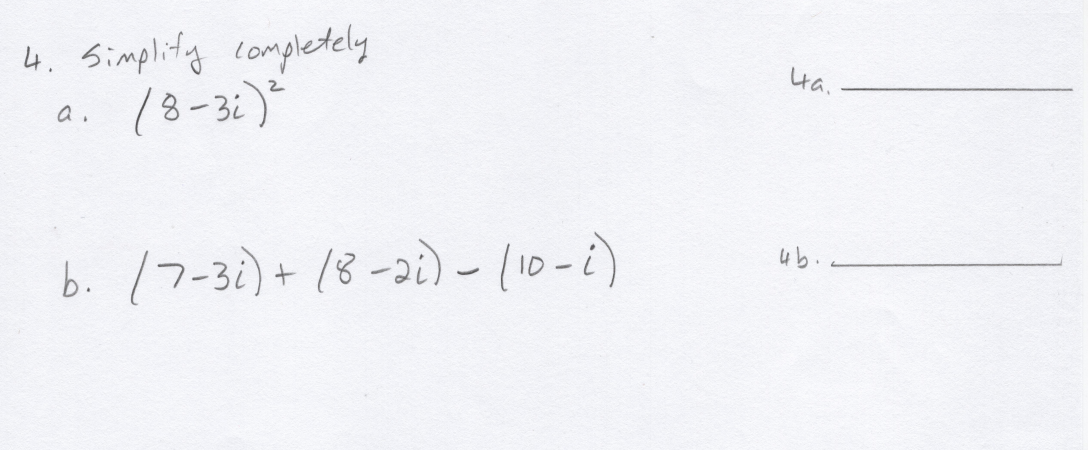 4. Simplify completely
a. (8-3i)² 4a.
b. (7-3i) + (8-2i) - (10-i) 4b.